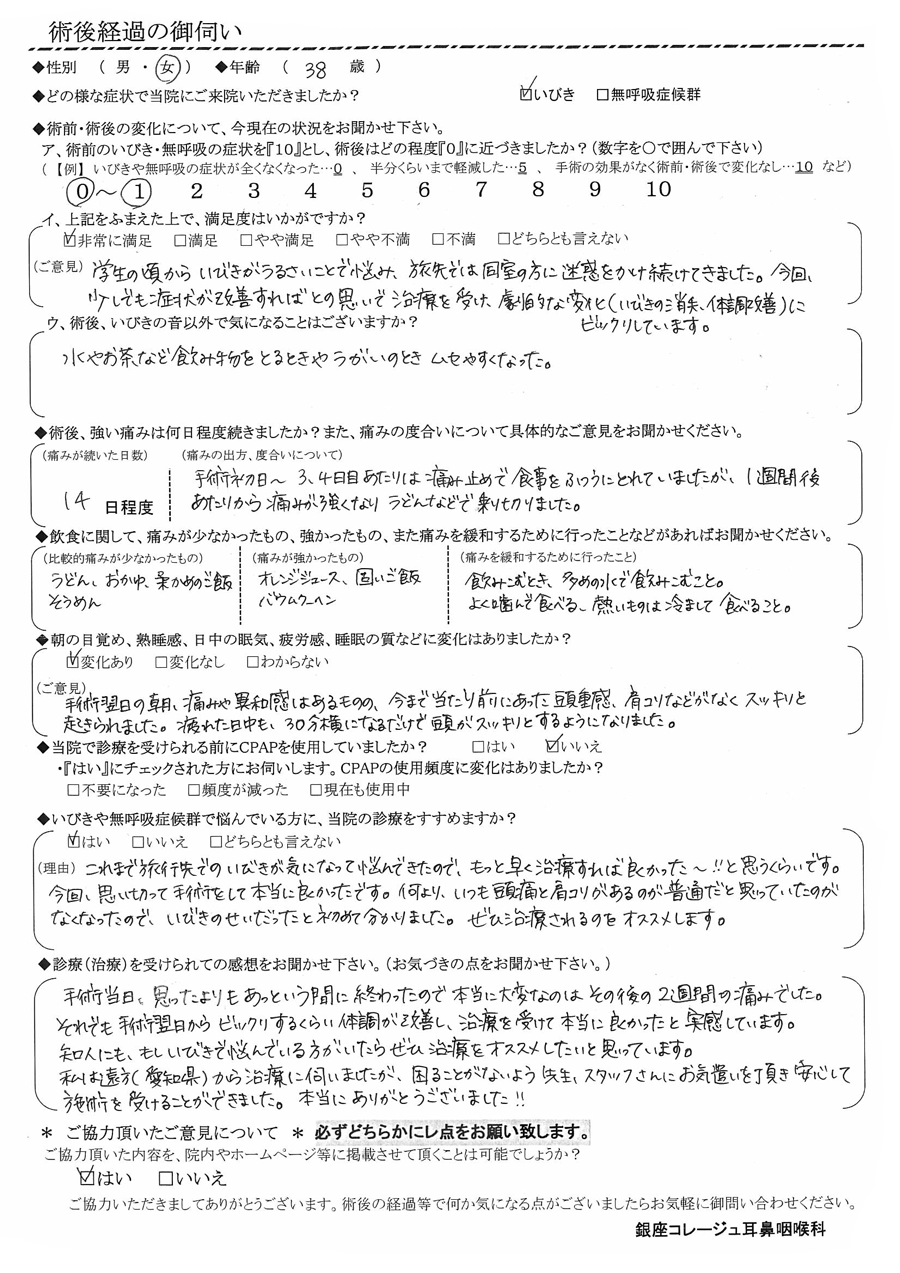 術後経過の御伺い
◆性別 ( 男 ・ 女 ) ◆年齢 ( 38 歳 )
◆どの様な症状で当院にご来院いただきましたか? ☑いびき □無呼吸症候群
◆術前・術後の変化について、今現在の状況をお聞かせ下さい。
ア、術前のいびき・無呼吸の症状を『10』とし、術後はどの程度『0』に近づきましたか?(数字を○で囲んで下さい)
(【例】いびきや無呼吸の症状が全くなくなった…0 、 半分くらいまで軽減した…5 、 手術の効果がなく術前・術後で変化なし…10 など)
0 ~ 1 2 3 4 5 6 7 8 9 10
イ、上記をふまえた上で、満足度はいかがですか?
☑非常に満足 □満足 □やや満足 □やや不満 □不満 □どちらとも言えない
(ご意見) 学生の頃から いびきがうるさいことで悩み、旅先では同室の方に迷惑をかけ続けてきました。今回、
少しでも症状が改善すればとの思いで治療を受け、劇的な変化(いびきの消失、体調改善)に
ビックリしています。
ウ、術後、いびきの音以外で気になることはございますか?
水やお茶など飲み物をとるときや うがいのとき ムセやすくなった。
◆術後、強い痛みは何日程度続きましたか?また、痛みの度合いについて具体的なご意見をお聞かせください。
(痛みが続いた日数) (痛みの出方、度合いについて)
14 日程度
手術初日~3、4日目あたりは痛み止めで食事をふつうにとれていましたが、1週間後
あたりから痛みが強くなり うどんなどで乗り切りました。
◆飲食に関して、痛みが少なかったもの、強かったもの、また痛みを緩和するために行ったことなどがあればお聞かせください。
(比較的痛みが少なかったもの) (痛みが強かったもの) (痛みを緩和するために行ったこと)
うどん、おかゆ、柔かめのご飯
そうめん
オレンジジュース、固いご飯
バウムクーヘン
飲みこむとき、多めの水で飲みこむこと。
よく噛んで食べる、熱いものは冷まして食べること。
◆朝の目覚め、熟睡感、日中の眠気、疲労感、睡眠の質などに変化はありましたか?
☑変化あり □変化なし □わからない
(ご意見)
手術翌日の朝、痛みや異和感はあるものの、今まで当たり前にあった頭重感、肩コリなどがなくスッキリと
起きられました。疲れた日中も、30分横になるだけで頭がスッキリとするようになりました。
◆当院で診療を受けられる前にCPAPを使用していましたか? □はい ☑いいえ
・『はい』にチェックされた方にお伺いします。CPAPの使用頻度に変化はありましたか?
□不要になった □頻度が減った □現在も使用中
◆いびきや無呼吸症候群で悩んでいる方に、当院の診療をすすめますか?
☑はい □いいえ □どちらとも言えない
(理由) これまで旅行先でのいびきが気になって悩んできたので、もっと早く治療すれば良かった~!!と思うくらいです。
今回、思い切って手術をして本当に良かったです。何より、いつも頭痛と肩コリがあるのが普通だと思っていたのが
なくなったので、いびきのせいだったと初めて分かりました。ぜひ治療されるのをオススメします。
◆診療(治療)を受けられての感想をお聞かせ下さい。(お気づきの点をお聞かせ下さい。)
手術当日、思ったよりもあっという間に終わったので本当に大変なのはその後の2週間の痛みでした。
それでも手術翌日からビックリするくらい体調が改善し、治療を受けて本当に良かったと実感しています。
知人にも、もしいびきで悩んでいる方がいたらぜひ治療をオススメしたいと思っています。
私は遠方(愛知県)から治療に伺いましたが、困ることがないよう先生、スタッフさんにお気遣いを頂き安心して
施術を受けることができました。本当にありがとうございました!!
* ご協力頂いたご意見について * 必ずどちらかにレ点をお願い致します。
ご協力頂いた内容を、院内やホームページ等に掲載させて頂くことは可能でしょうか?
☑はい □いいえ
ご協力いただきましてありがとうございます。術後の経過等で何か気になる点がございましたらお気軽に御問い合わせください。
銀座コレージュ耳鼻咽喉科